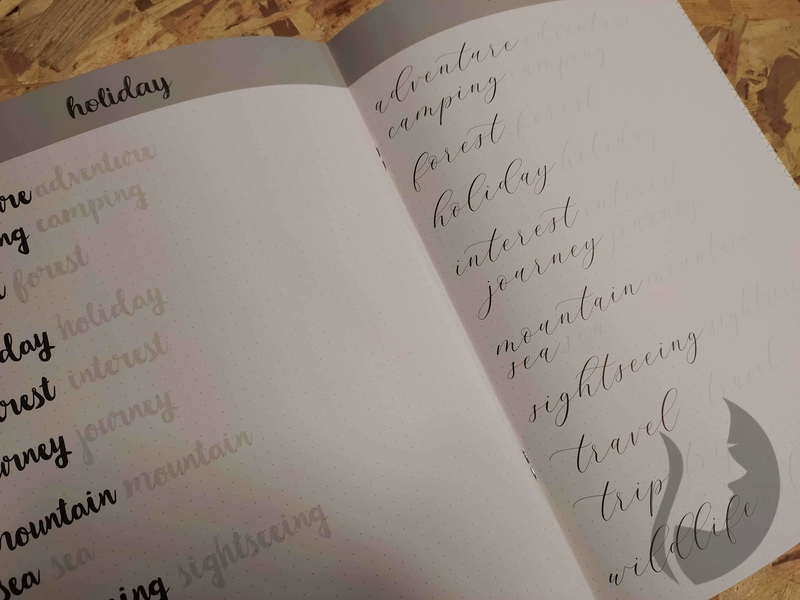 holiday
ure adventure
ng camping
forest
day holiday
rest interest
urney journey
mountain mountain
sea sea
ing sightseeing
adventure adventure
camping camping
forest forest
holiday holiday
interest interest
journey journey
mountain mountain
sea sea
sightseeing sightsee
travel travel
trip
wildlife